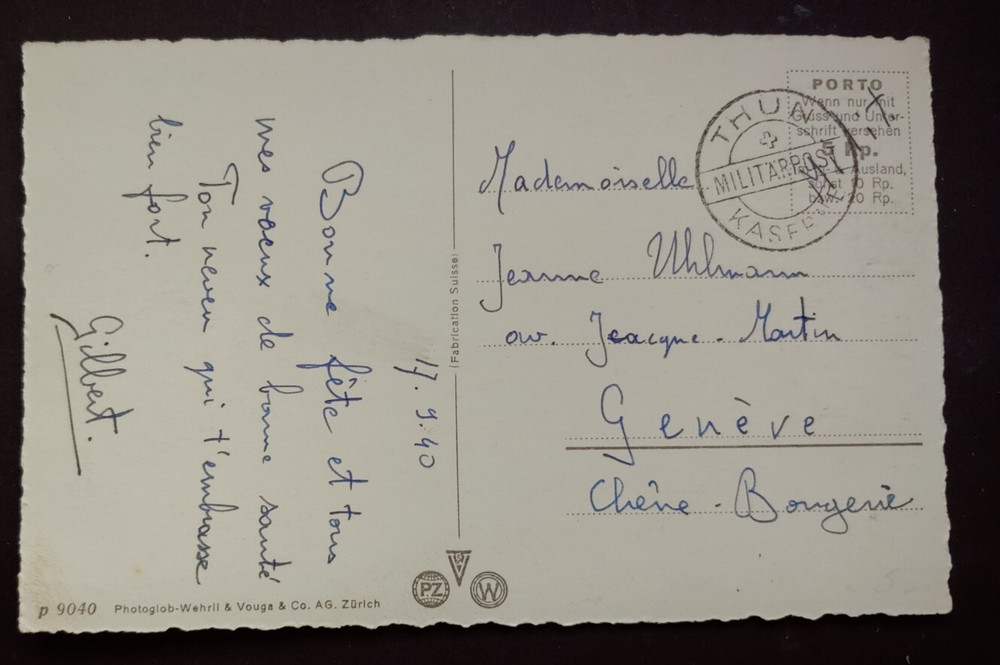 17.9.40
Bonne fête et tous
mes voeux de bonne santé
Ton neveu qui t'embrasse
bien fort.
Gilbert.
(Fabrication Suisse)
PORTO
Wenn nur mit
Gruss und Unter-
schrift versehen
5 Rp.
Ausland,
sonst 10 Rp.
bzw. 20 Rp.
THUN
MILITÄRPOST
KASERNE
Mademoiselle
Jeanne Uhlmann
av. Jeacque-Martin
Genève
Chêne-Bougerie
PZ
W
p 9040 Photoglob-Wehrli & Vouga & Co. AG. Zürich